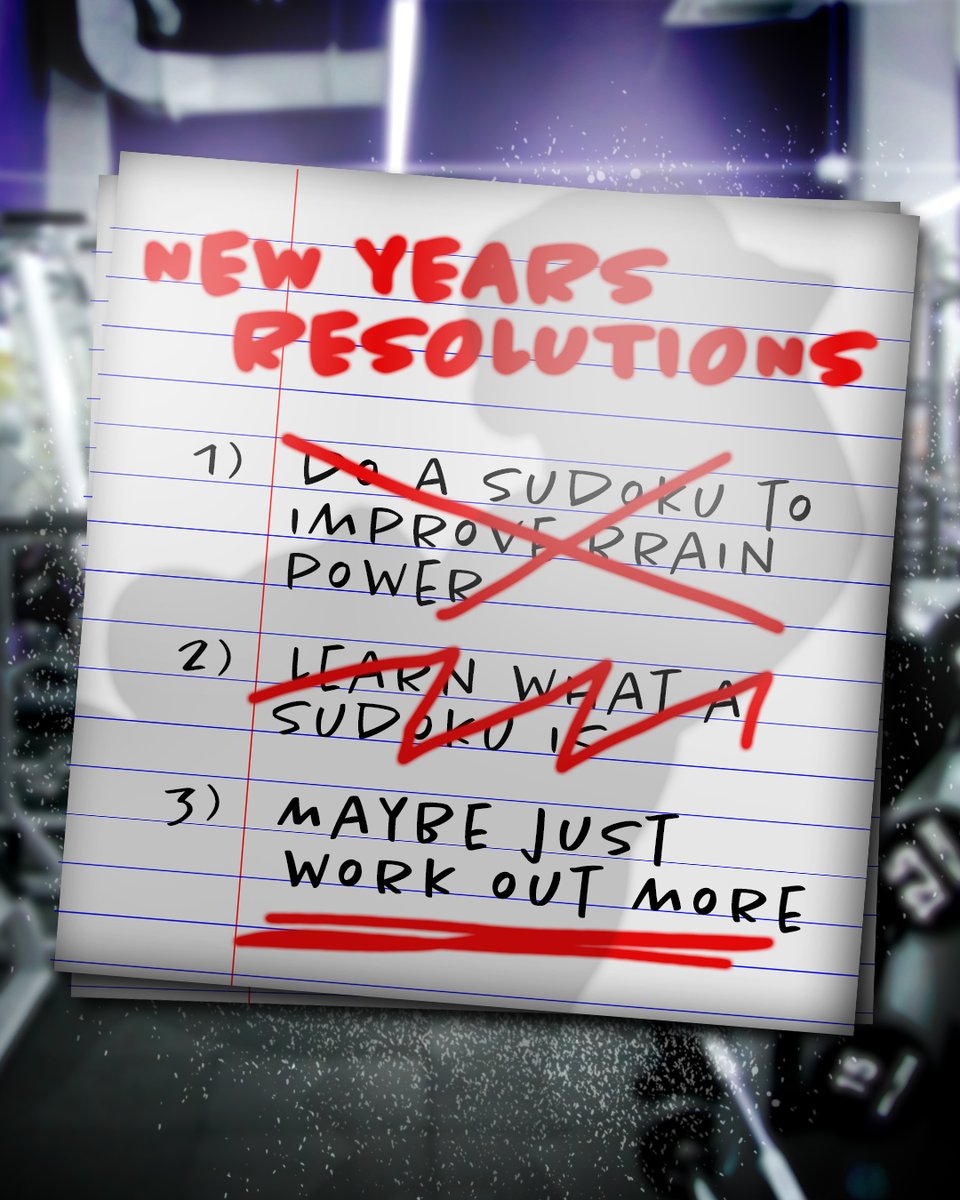 NEW YEARS
RESOLUTIONS
1) DO A SUDOKU TO
IMPROVE BRAIN
POWER
2) LEARN WHAT A
SUDOKU IS
3) MAYBE JUST
WORK OUT MORE
15